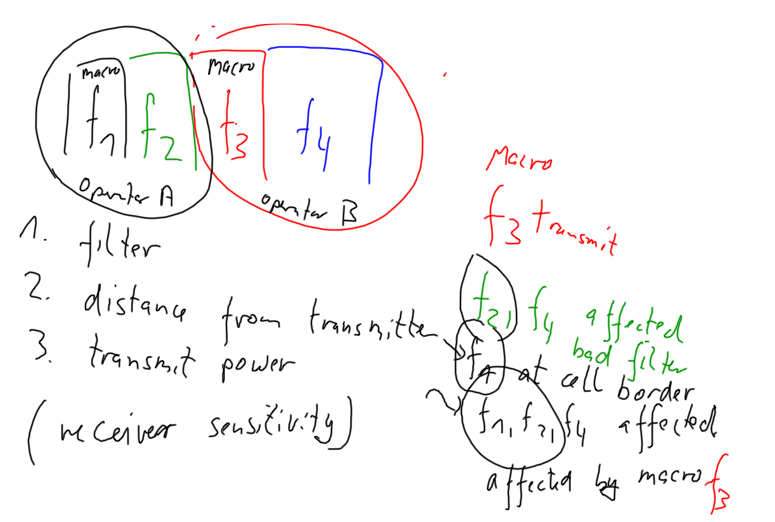 macro macro
f1 f2 f3 f4
operator A operator B
1. filter
2. distance from transmitter
3. transmit power
(receiver sensitivity)
Macro
f3 transmit
f2, f4 affected
bad filter
f4 at cell border
f1, f2, f4 affected
affected by macro f3